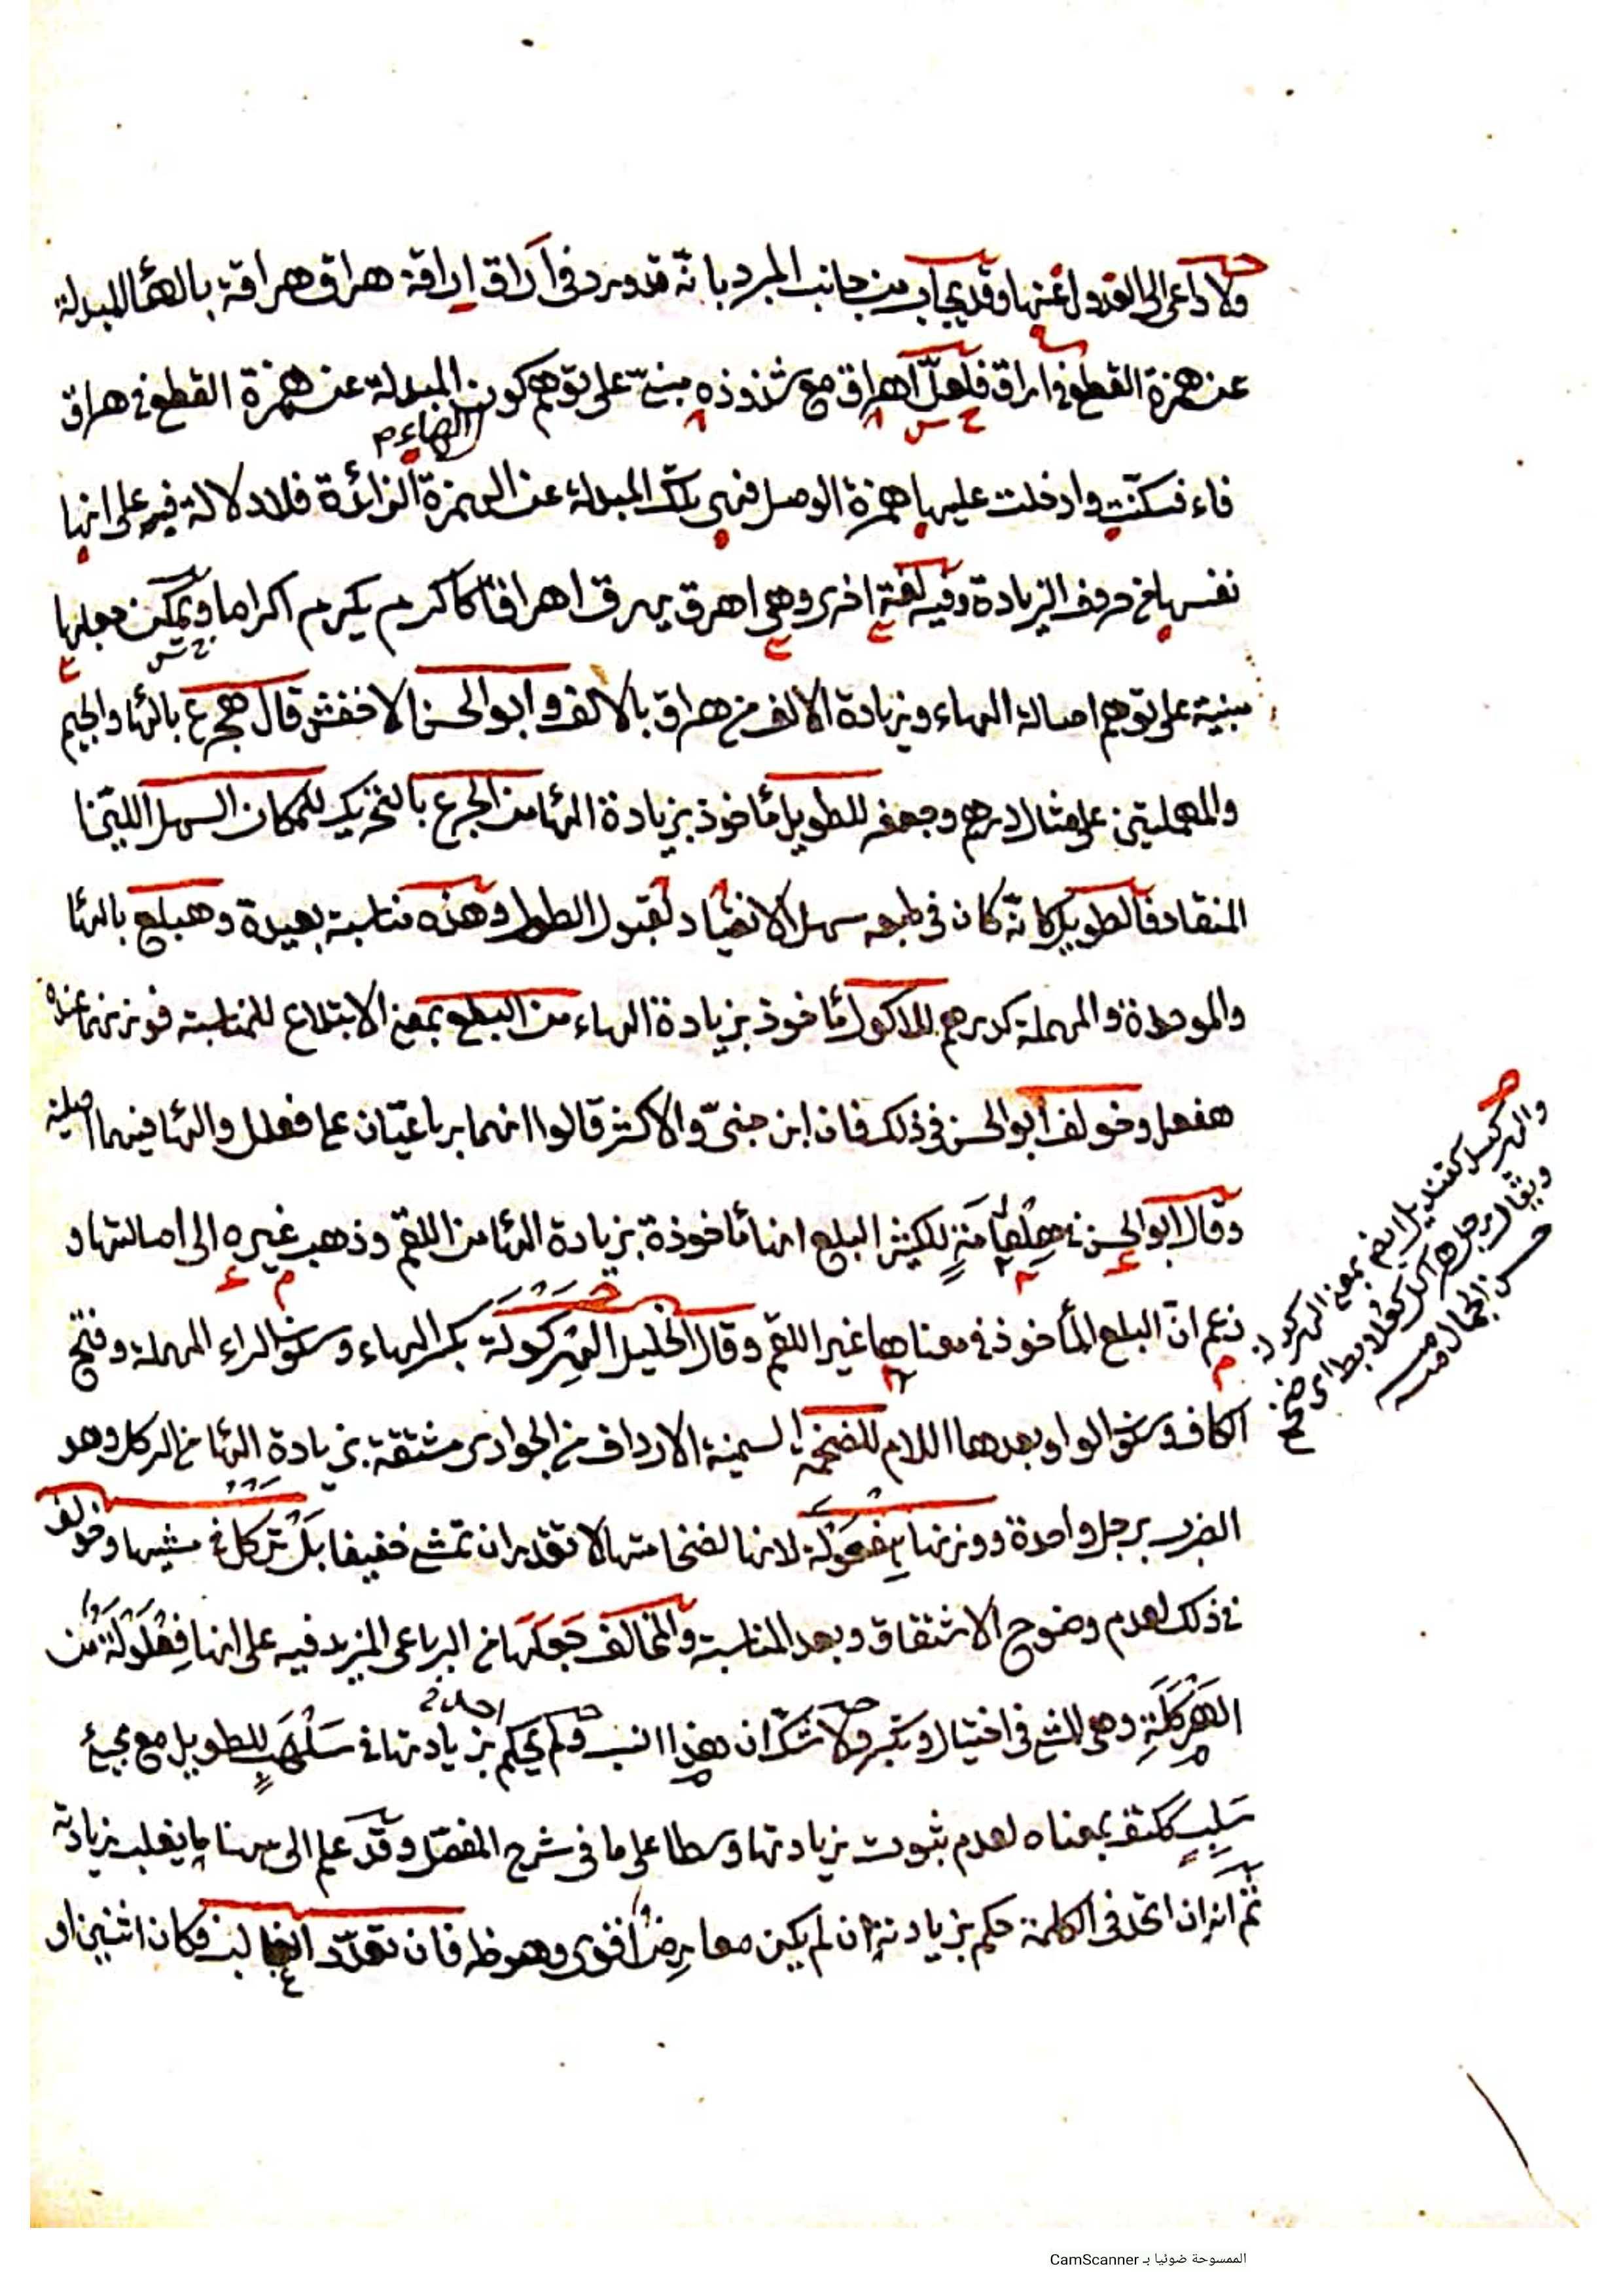 ولا داعي الى العدول عنها وقد يجاب من جانب المبرد بانّه قد ورد في اَراق اِراقة هراق هراقة بالهاء المبدلة
عن همزة القطع في اراق فلعلّ اهراق مع شذوذه مبنيّ على توهم كون المبدلة عن همزة القطع في هراق
الهاء
فاء فسكّنت وادخلت عليها همزة الوصل فهي تلك المبدلة عن الهمزة الزائدة فلا دلالة فيه على انها
نفسها من حروف الزيادة وفيه لغة اخرى وهي اهرق يهرق اهراقا كاكرم يكرم اكراما ويمكن جعلها
مبنية على توهم اصالة الهاء وزيادة الالف من هراق بالالف وابو الحسن الاخفش قال هجرع بالهاء والجيم
والمهملتين على مثال درهم وجعفر للطويل مأخوذ بزيادة الهاء من الجرع بالتحريك للمكان السهل اللين
المنقاد فالطويل كانّه كان في طبعه سهل الانقياد لقبول الطول وهذه مناسبة بعيدة وهبلع بالهاء
والموحدة والمهملة كدرهم للاكول مأخوذ بزيادة الهاء من البلع بمعنى الابتلاع للمناسبة فوزنهما عنده
هفعل وخولف ابو الحسن في ذلك فان ابن جنيّ والاكثر قالوا انهما رباعيّان على فعلل والهاء فيهما اصلية
وقال ابو الحسن في هلقامة للكثير البلع انها مأخوذة بزيادة الهاء من اللقم وذهب غيره الى اصالتها و
زعم انّ البلع المأخوذ في معناها غير اللقم وقال الخليل الهِركَولة بكسر الهاء وسكون الراء المهملة وفتح
الكاف وسكون الواو وبعدها اللام للضخمة السمينة الارداف من الجواري مشتقة بزيادة الهاء من الركل وهو
الضرب برجل واحدة ووزنها هِفعَولة لانها لضخامتها لا تقدر ان تمشي خفيفا بل تركل في مشيها وخولف
في ذلك لعدم وضوح الاشتقاق وبعد المناسبة والمخالف جعلها من الرباعي المزيد فيه على انها فِعلَولة من
الهَركَلَةِ وهي المشي في اختيال وتكبر ولا شكّ ان هذا انسب ولم يحكم بزيادتها في سَلهَبٍ للطويل مع مجيء
سَلِبٍ ككتف بمعناه لعدم ثبوت زيادتها وسطا على ما في شرح المفصّل وقد علم الى هنا ما يغلب زيادته
ثم انه ان اتحد في الكلمة حكم بزيادته ان لم يكن معارض اقوى وهو ظ فان تعدّد الغالب فكان اثنين او
والهركيل كقنديل ايضا بمعنى
ويقال رجل هراكل كعلابط اى ضخم
الممسوحة ضوئيا بـ CamScanner